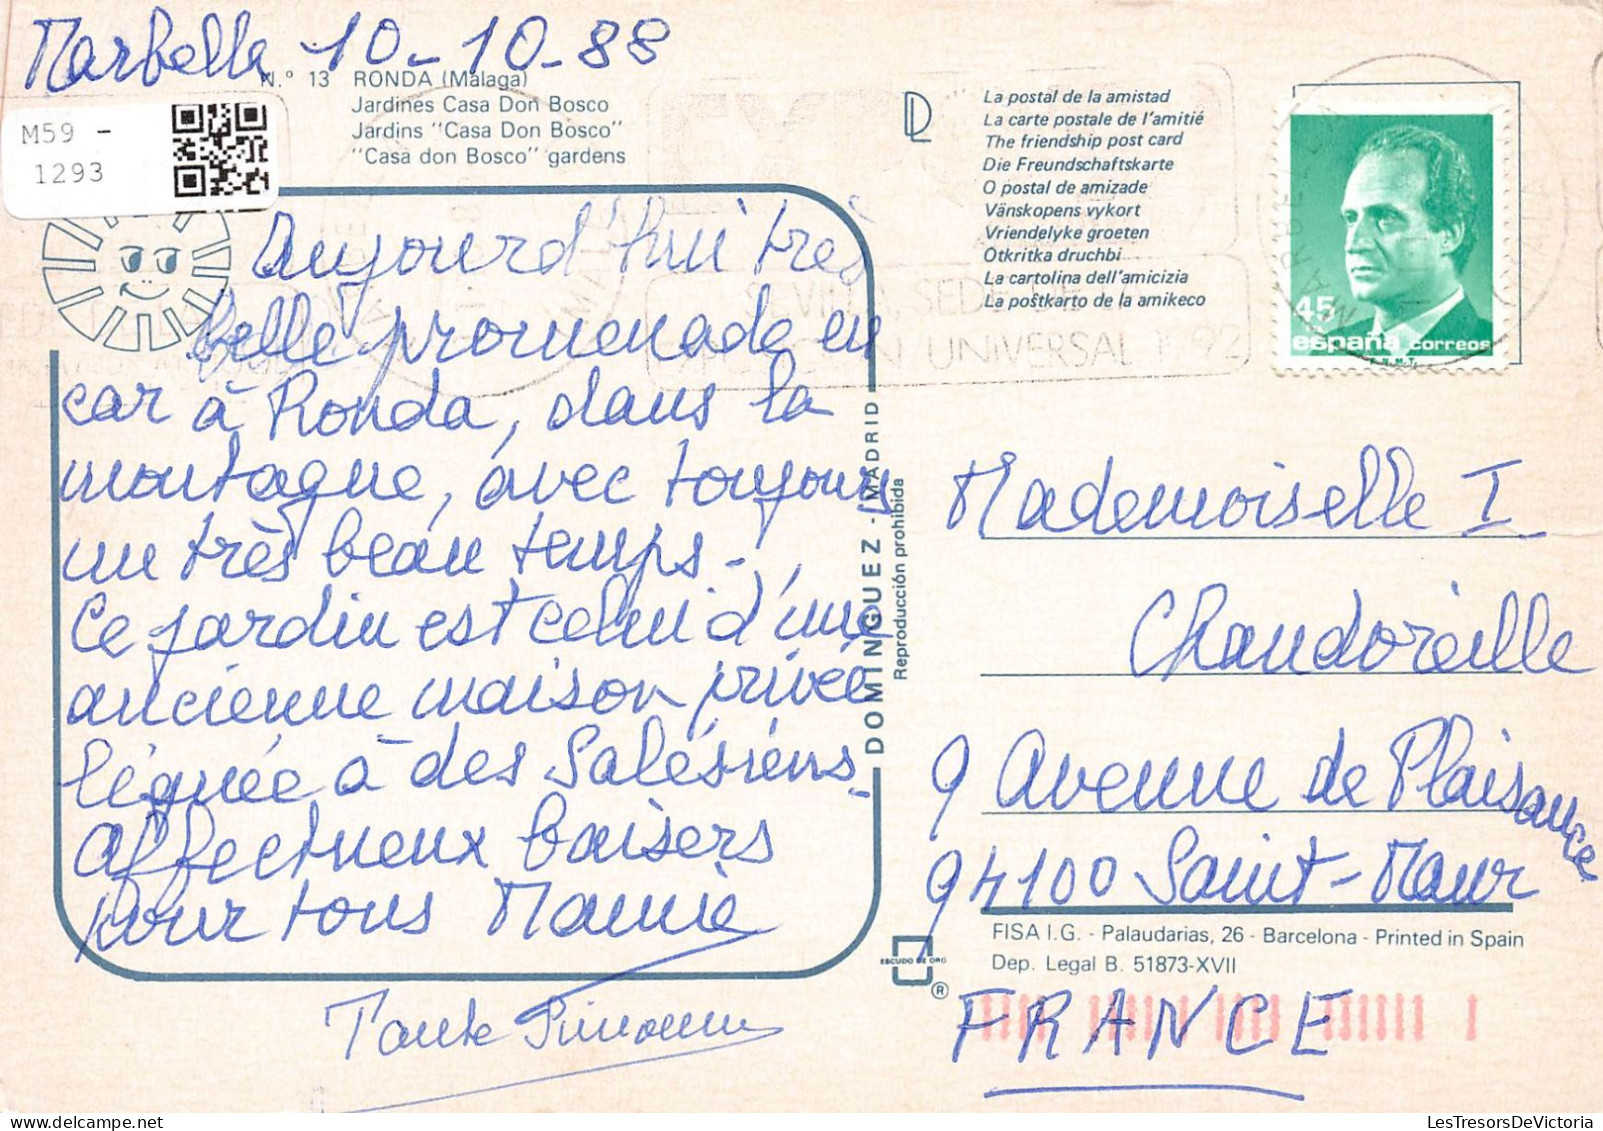 Marbella 10-10-88
N.º 13 RONDA (Málaga)
Jardines Casa Don Bosco
Jardins "Casa Don Bosco"
"Casa don Bosco" gardens
M59 -
1293
Aujourd'hui très
belle promenade en
car à Ronda, dans la
montagne, avec toujours
un très beau temps -
Ce jardin est celui d'une
ancienne maison privée
léguée à des Salésiens -
affectueux baisers
pour tous Mamie
Tante Simonne
DOMINGUEZ - MADRID
Reproducción prohibida
La postal de la amistad
La carte postale de l'amitié
The friendship post card
Die Freundschaftskarte
O postal de amizade
Vänskopens vykort
Vriendelyke groeten
Otkritka druchbi
La cartolina dell'amicizia
La poŝtkarto de la amikeco
SEVILLA, SEDE DE LA
EXPOSICION UNIVERSAL 1992
MARBELLA
45
españa correos
F.N.M.T.
Mademoiselle I
Chandoreille
9 Avenue de Plaisance
94100 Saint-Maur
FISA I.G. - Palaudarias, 26 - Barcelona - Printed in Spain
Dep. Legal B. 51873-XVII
ESCUDO DE ORO
®
FRANCE
LesTresorsDeVictoria